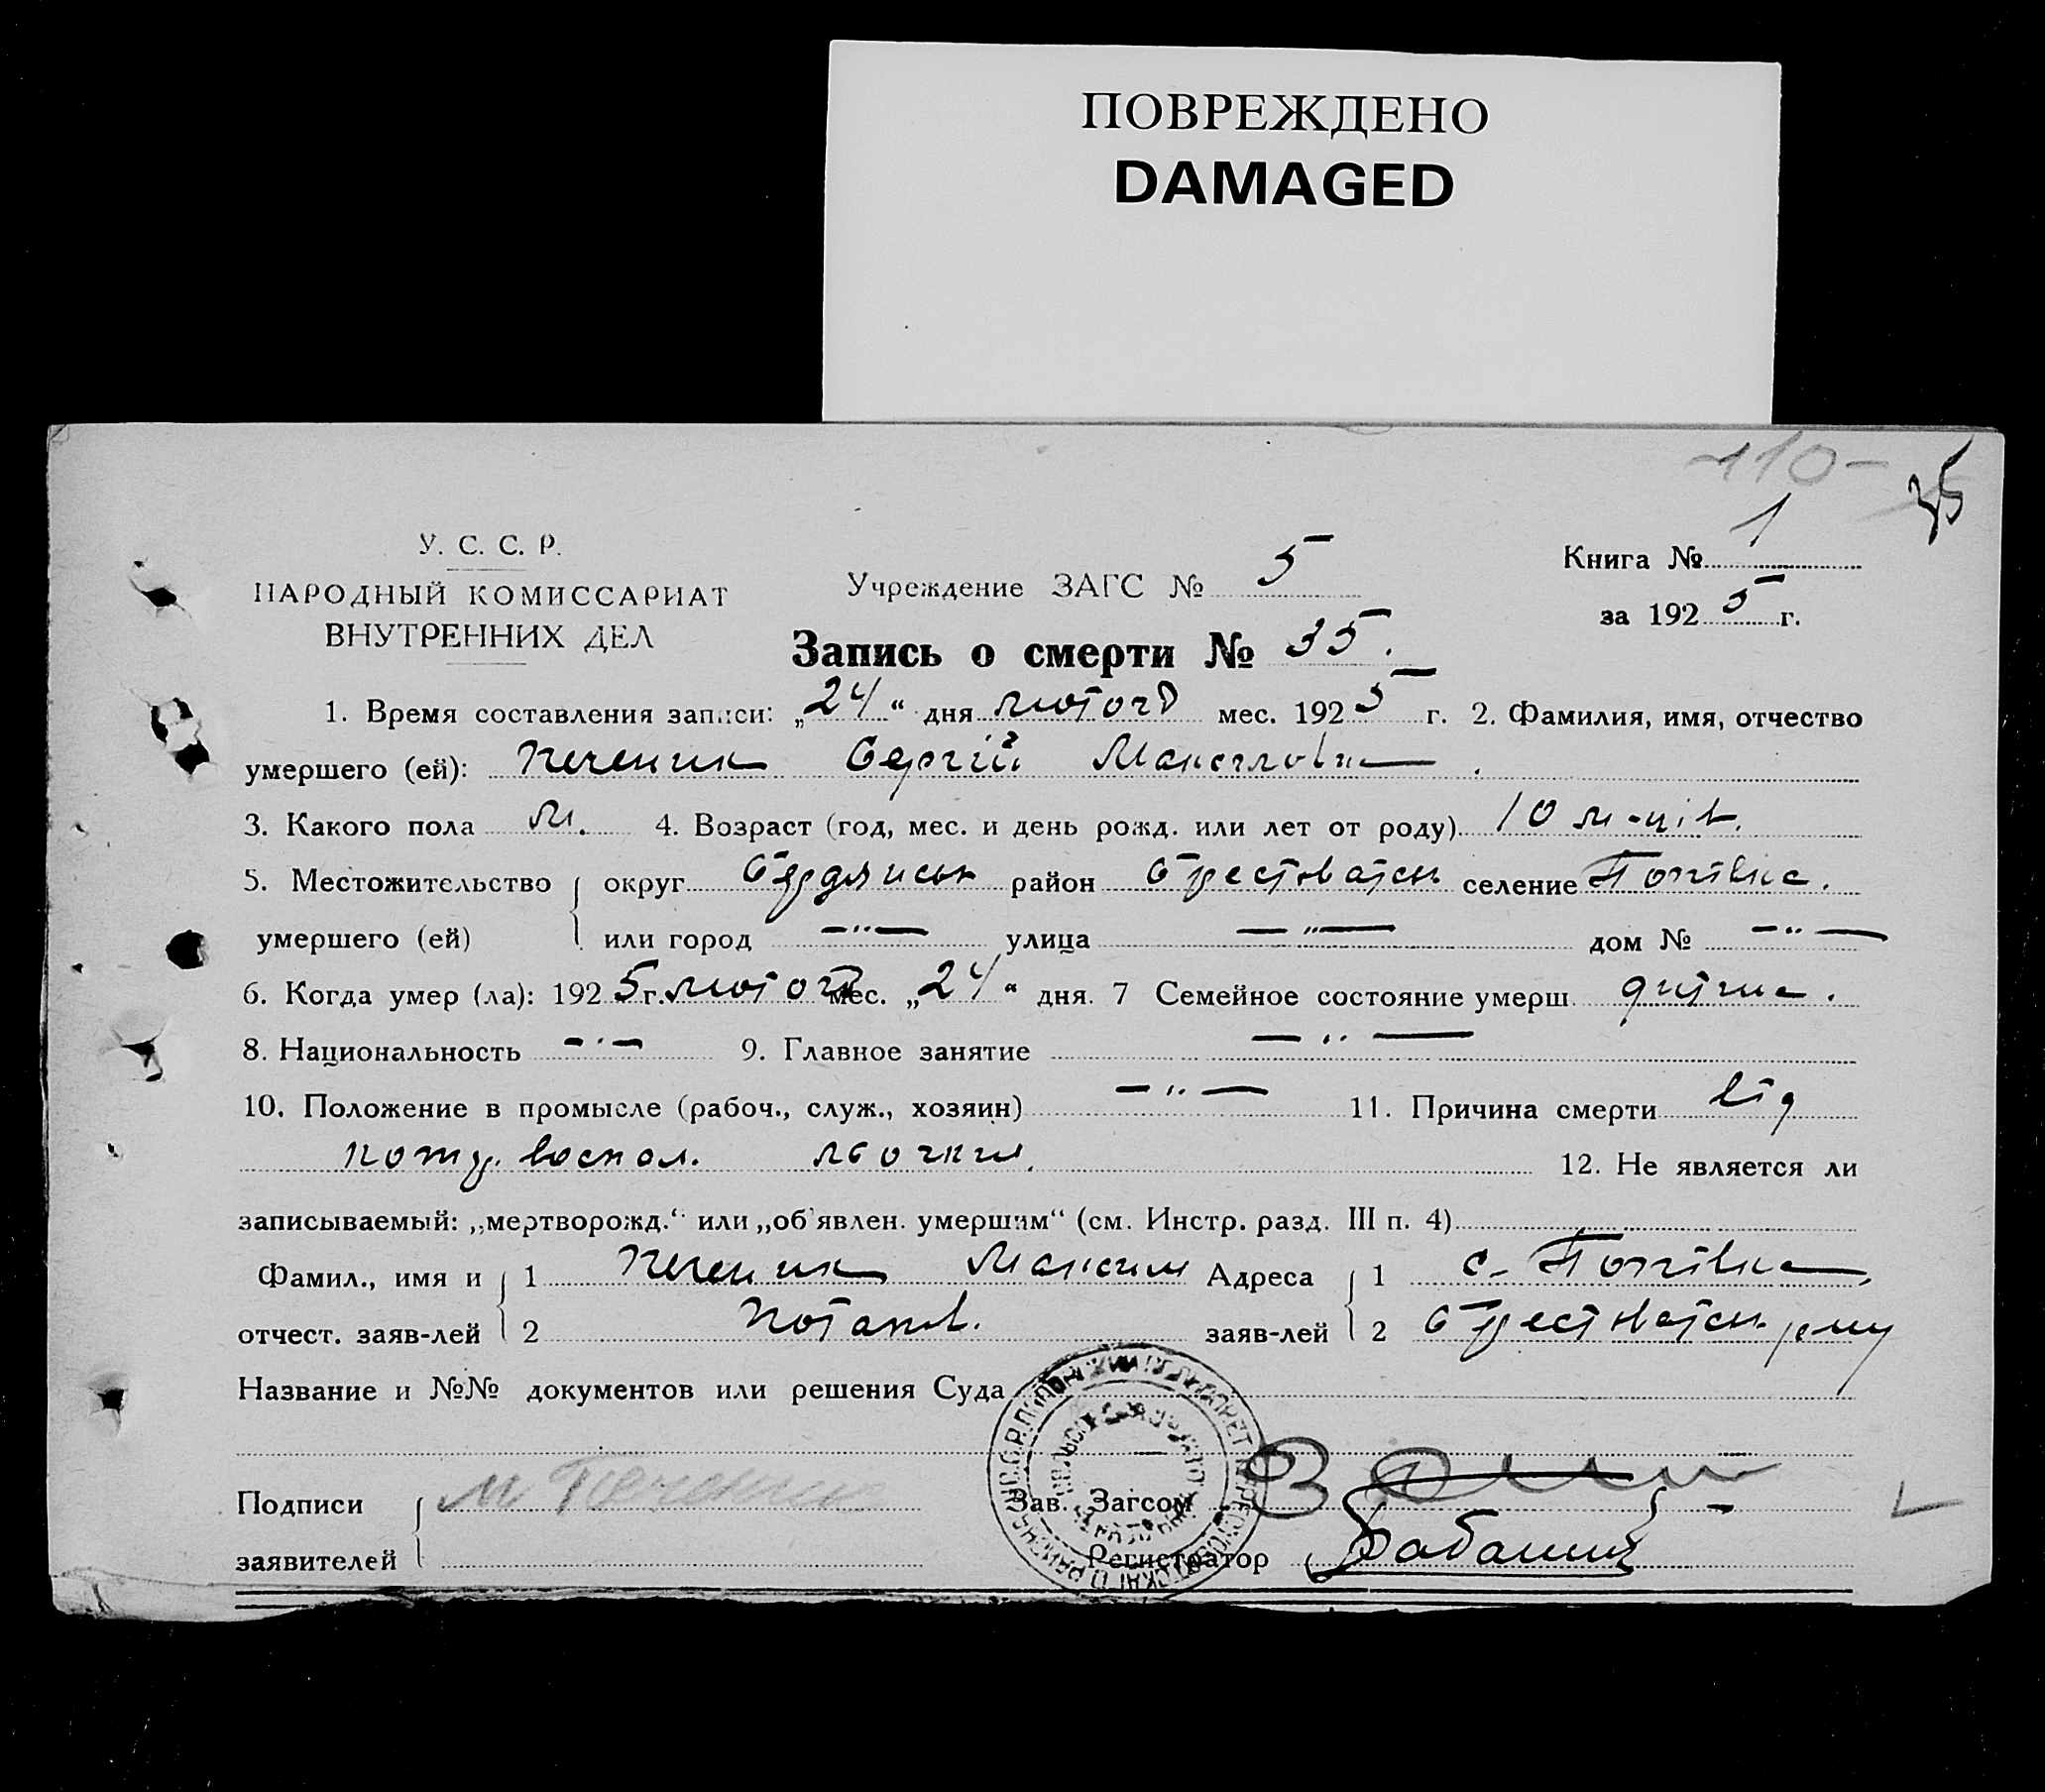 ПОВРЕЖДЕНО
DAMAGED
-110-
35
У. С. С. Р.
НАРОДНЫЙ КОМИССАРИАТ
ВНУТРЕННИХ ДЕЛ
Учреждение ЗАГС № 5
Книга № 1
за 1925 г.
Запись о смерти № 35.
1. Время составления записи: „24“ дня лютого мес. 1925 г. 2. Фамилия, имя, отчество
умершего (ей): Печеник Сергій Максимович
3. Какого пола м. 4. Возраст (год, мес. и день рожд. или лет от роду) 10 м-ців.
5. Местожительство округ Бердянськ район Трестоватськ селение Попівка.
умершего (ей) или город —"— улица —"— дом № —"—
6. Когда умер (ла): 1925 г. лютого мес. „24“ дня. 7 Семейное состояние умерш. дитина.
8. Национальность —"— 9. Главное занятие —"—
10. Положение в промысле (рабоч., служ., хозяин) —"— 11. Причина смерти від
воспол. 12. Не является ли
записываемый: „мертворожд.“ или „об'явлен. умершим“ (см. Инстр. разд. III п. 4)
Фамил., имя и 1 Печеник Максим Адреса 1 с. Попівка,
отчест. заяв-лей 2 Потапов. заяв-лей 2
Название и №№ документов или решения Суда
Подписи М Печеник Зав. Загсом
заявителей Регистратор